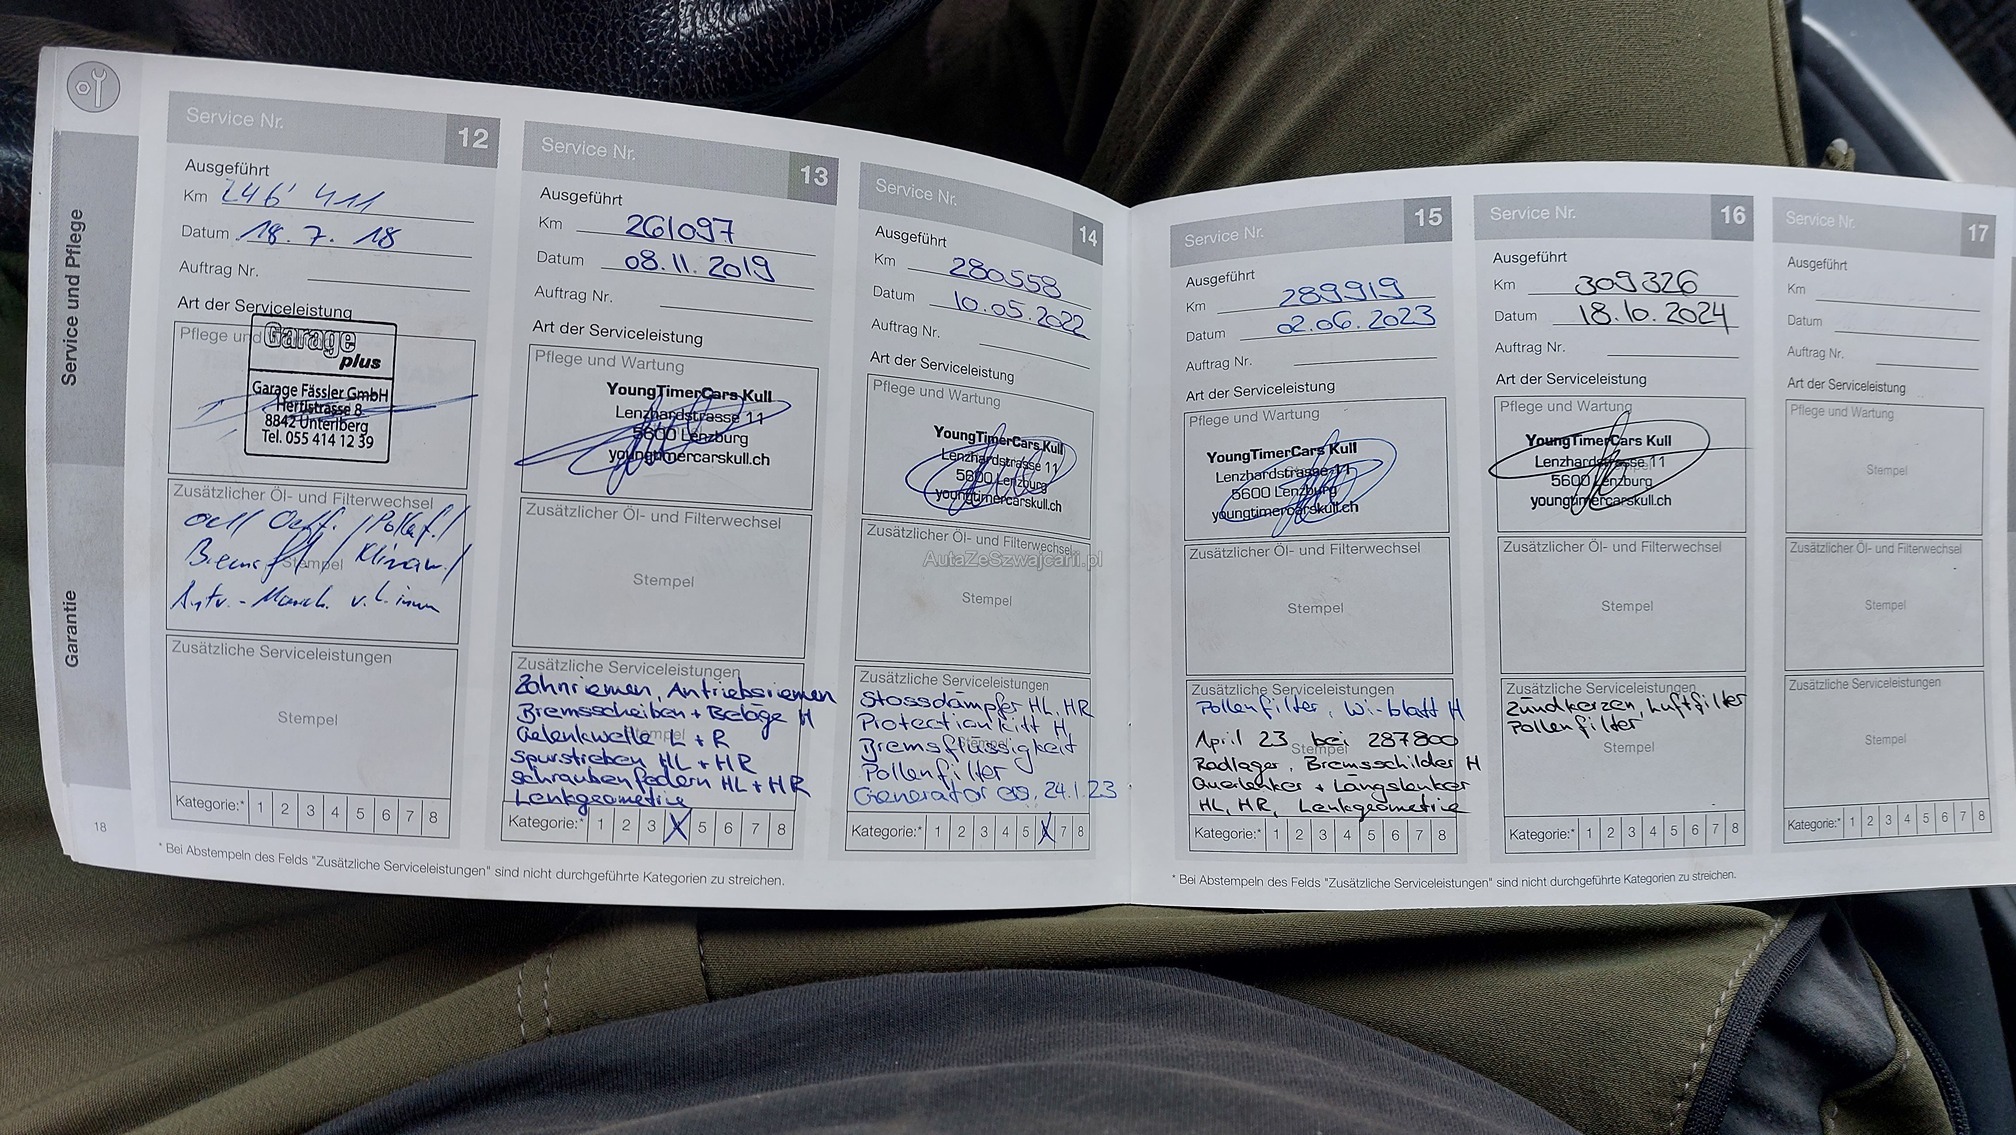 Service und Pflege
Garantie
18
Service Nr. 12
Ausgeführt
Km 246'411
Datum 18. 7. 18
Auftrag Nr.
Art der Serviceleistung
Pflege und
Garage
plus
Garage Fässler GmbH
Herlistrasse 8
8842 Unteriberg
Tel. 055 414 12 39
Zusätzlicher Öl- und Filterwechsel
Stempel
Zusätzliche Serviceleistungen
Stempel
Kategorie:* 1 2 3 4 5 6 7 8
Service Nr. 13
Ausgeführt
Km 261097
Datum 08.11.2019
Auftrag Nr.
Art der Serviceleistung
Pflege und Wartung
YoungTimerCars Kull
Lenzhardstrasse 11
5600 Lenzburg
youngtimercarskull.ch
Zusätzlicher Öl- und Filterwechsel
Stempel
Zusätzliche Serviceleistungen
Zahnriemen, Antriebsriemen
Bremsscheiben + Beläge H
Gelenkwelle L + R
Stempel
Spurstreben HL + HR
Schraubenfedern HL + HR
Lenkgeometrie
Kategorie:* 1 2 3 X 5 6 7 8
* Bei Abstempeln des Felds "Zusätzliche Serviceleistungen" sind nicht durchgeführte Kategorien zu streichen.
Service Nr. 14
Ausgeführt
Km 280558
Datum 10.05.2022
Auftrag Nr.
Art der Serviceleistung
Pflege und Wartung
YoungTimerCars Kull
Lenzhardstrasse 11
5600 Lenzburg
youngtimercarskull.ch
Zusätzlicher Öl- und Filterwechsel
AutaZeSzwajcarii.pl
Stempel
Zusätzliche Serviceleistungen
Stossdämpfer HL, HR
Protectionkitt H,
Bremsflüssigkeit
Stempel
Pollenfilter
Generator 24.1.23
Kategorie:* 1 2 3 4 5 X 7 8
Service Nr. 15
Ausgeführt
Km 289919
Datum 02.06.2023
Auftrag Nr.
Art der Serviceleistung
Pflege und Wartung
YoungTimerCars Kull
Lenzhardstrasse 11
5600 Lenzburg
youngtimercarskull.ch
Zusätzlicher Öl- und Filterwechsel
Stempel
Zusätzliche Serviceleistungen
Pollenfilter, Wi-blatt H
April 23 bei 287800
Stempel
Radlager, Bremsschilder H
Querlenker + Längslenker
HL, HR, Lenkgeometrie
Kategorie:* 1 2 3 4 5 6 7 8
* Bei Abstempeln des Felds "Zusätzliche Serviceleistungen" sind nicht durchgeführte Kategorien zu streichen.
Service Nr. 16
Ausgeführt
Km 309326
Datum 18.10.2024
Auftrag Nr.
Art der Serviceleistung
Pflege und Wartung
YoungTimerCars Kull
Lenzhardstrasse 11
5600 Lenzburg
youngtimercarskull.ch
Zusätzlicher Öl- und Filterwechsel
Stempel
Zusätzliche Serviceleistungen
Zündkerzen, Luftfilter
Pollenfilter
Stempel
Kategorie:* 1 2 3 4 5 6 7 8
Service Nr. 17
Ausgeführt
Km
Datum
Auftrag Nr.
Art der Serviceleistung
Pflege und Wartung
Stempel
Zusätzlicher Öl- und Filterwechsel
Stempel
Zusätzliche Serviceleistungen
Stempel
Kategorie:* 1 2 3 4 5 6 7 8